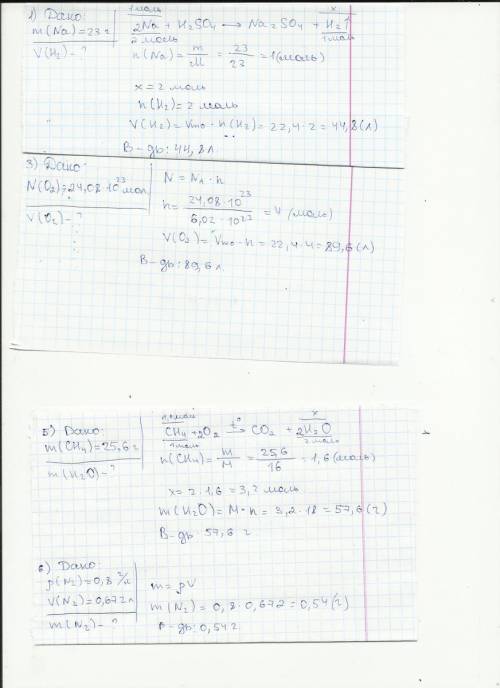 1) Дано:
m(Na)=23 г
V(H₂) - ?
1 моль x
2Na + H₂SO₄ → Na₂SO₄ + H₂↑
2 моль 1 моль
n(Na) = m/M = 23/23 = 1 (моль)
x = 2 моль
n(H₂) = 2 моль
V(H₂) = Vmo · n(H₂) = 22,4 · 2 = 44,8 (л)
В-дь: 44,8 л.
3) Дано:
N(O₂) = 24,08·10²³ мол
V(O₂) - ?
N = Nₐ · n
n = 24,08·10²³ / 6,02·10²³ = 4 (моль)
V(O₂) = Vmo · n = 22,4·4 = 89,6 (л)
В-дь: 89,6 л.
5) Дано:
m(CH₄) = 25,6 г
m(H₂O) - ?
1,6 моль x
CH₄ + 2O₂ t°→ CO₂ + 2H₂O
1 моль 2 моль
n(CH₄) = m/M = 256/16 = 1,6 (моль)
x = 2 · 1,6 = 3,2 моль
m(H₂O) = M · n = 3,2 · 18 = 57,6 (г)
В-дь: 57,6 г
6) Дано:
ρ(N₂) = 0,8 г/л
V(N₂) = 0,672 л
m(N₂) - ?
m = ρV
m(N₂) = 0,8 · 0,672 = 0,54 (г)
В-дь: 0,54 г